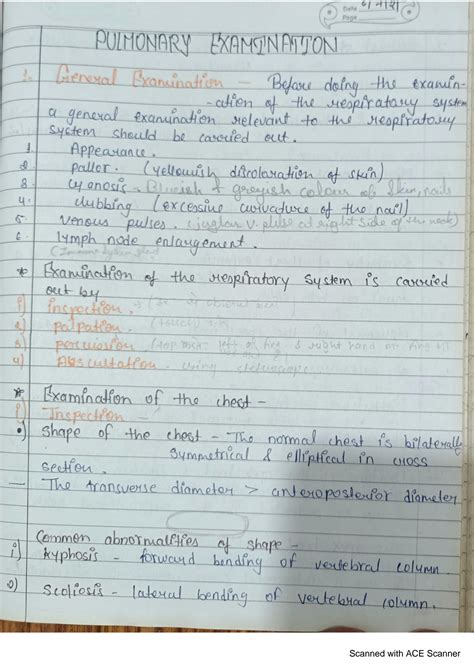 Date
Page
PULMONARY EXAMINATION
1. General Examination - Before doing the examin-
-ation of the respiratory system
a general examination relevant to the respiratory
system should be carried out.
1. Appearance.
2. pallor. (yellowish discoloration of skin)
3. cyanosis. Bluish + greyish colour of skin, nails
4. clubbing (excessive curvature of the nail)
5. venous pulses. (jugular v. pulse at right side of the neck)
6. lymph node enlargement.
* Examination of the respiratory system is carried
out by
1) inspection.
2) palpation.
3) percussion
4) Auscultation. using stethoscope
* Examination of the chest -
1) Inspection -
shape of the chest - The normal chest is bilaterally
symmetrical & elliptical in cross
section.
— The transverse diameter > anteroposterior diameter
Common abnormalities of shape -
1) kyphosis - forward bending of vertebral column
2) scoliosis - lateral bending of vertebral column.
Scanned with ACE Scanner